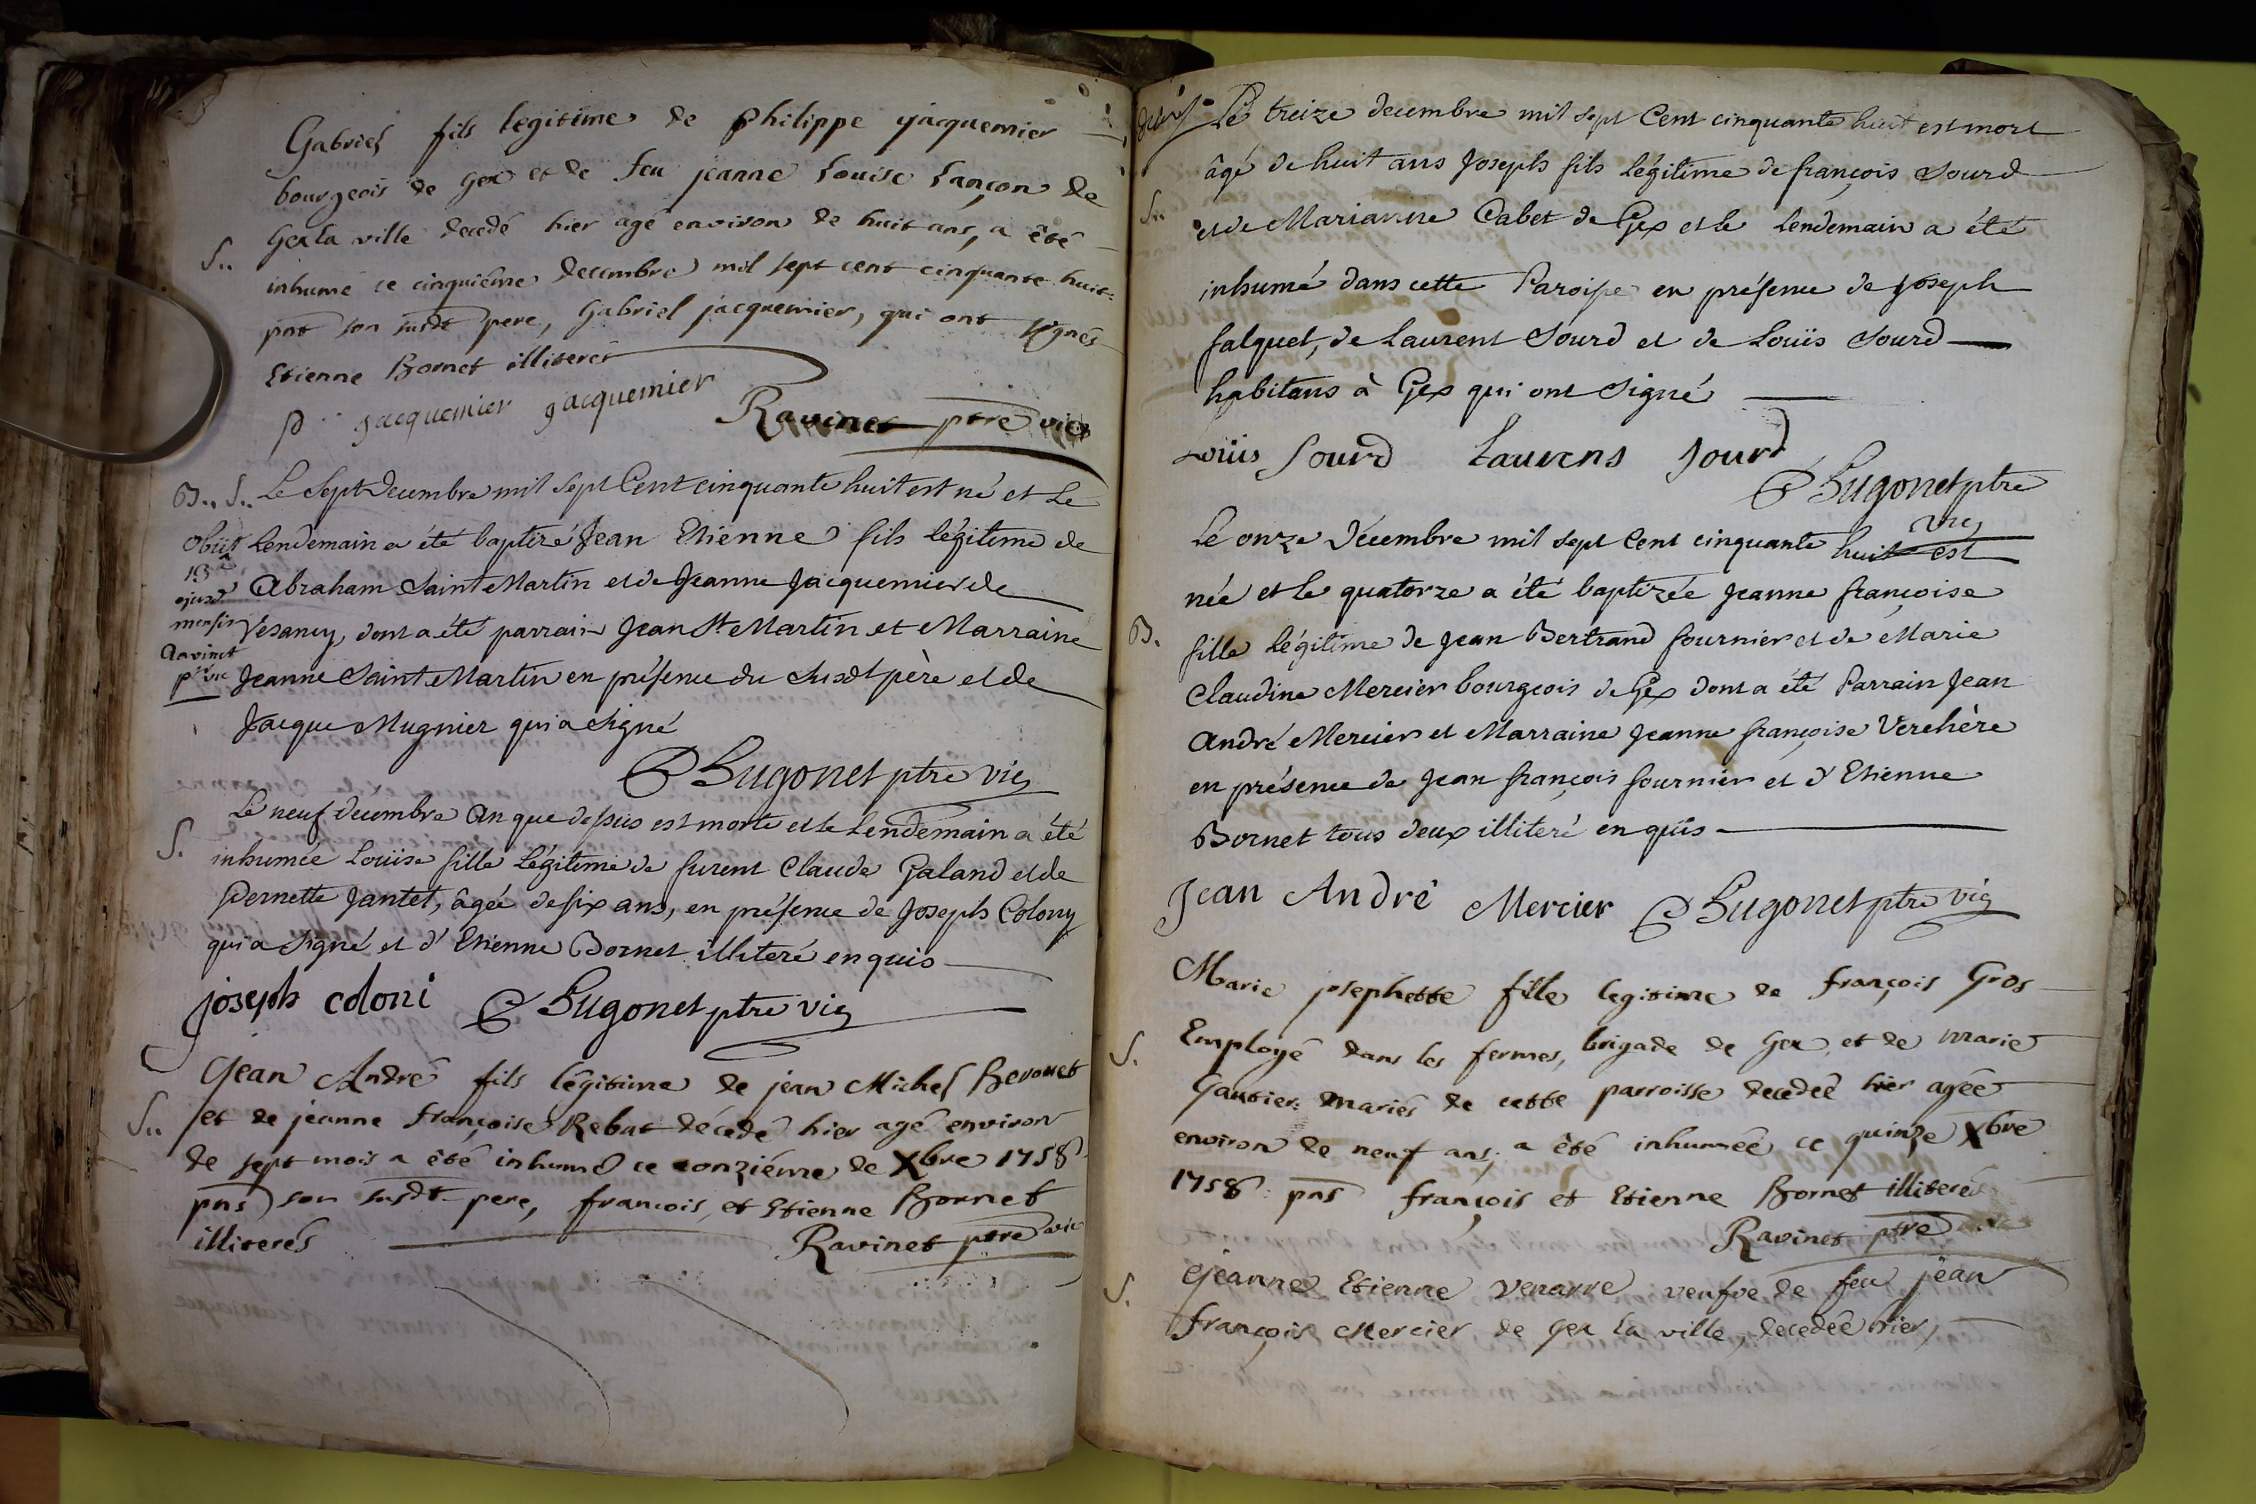 Gabriel fils legitime de philippe jacquemier
bourgeois de Gex et de feu jeanne Louise Lançon de
S.. Gex la ville decedé hier agé environ de huit ans, a êté
inhumé ce cinquiéme decembre mil sept cent cinquante huit:
pnt son susdt pere, Gabriel jacquemier, qui ont signés
Etienne Bornet illiterés
p jacquemier jacquemier
Ravinet ptre vic
B.. S.. Le Sept Decembre mil sept Cent cinquante huit est né et Le
Lendemain a été baptizé Jean Etienne fils légitime de
Abraham Saint Martin et de Jeanne Jacquemier de
Vesancy, dont a été parrain Jean St Martin et Marraine
Jeanne Saint Martin en présence du Susdt père et de
Jacque Mugnier qui a Signé
obiit
13a
ejusd
mensis
Ravinet
ptr vic
Bugonet ptre vic
Le neuf décembre an que dessus est morte et le Lendemain a été
S. inhumée Louïse fille Légitime de furent Claude Galand et de
Pernette Jantet, âgée de six ans, en présence de Joseph Colony
qui a Signé et d'Etienne Bornet illiteré enquis
joseph coloni Bugonet ptre vic
Jean André fils légitime de jean Michel Bevouet
S.. et de jeanne françoise Rebut décedé hier agé environ
de sept mois a êté inhumé ce onziéme de Xbre 1758
pns son susdt pere, francois, et Etienne Bornet
illiterés Ravinet ptre vic
Le treize decembre mil sept Cent cinquante huit est mort
âgé de huit ans Joseph fils Légitime de françois Sourd
S.. et de Marianne Cabet de Gex et le Lendemain a été
inhumé dans cette Paroisse en présence de Joseph
falquet, de Laurent Sourd et de Louïs Sourd
habitans à Gex qui ont Signé
Louïs Sourd Laurens Sourd
Bugonet ptre
vic
Le onze Décembre mil sept Cent cinquante huit est
née et le quatorze a été baptizée Jeanne françoise
B. fille Légitime de Jean Bertrand fournier et de Marie
Claudine Mercier bourgeois de Gex dont a été Parrain Jean
André Mercier et Marraine Jeanne françoise Verchère
en présence de Jean françois fournier et d'Etienne
Bornet tous deux illiteré enquis
Jean André Mercier Bugonet ptre vic
Marie josephette fille legitime de françois Gros
S. Employé dans les fermes, brigade de Gex, et de marie
Gautier: mariés de cette parroisse decedeé hier agée
environ de neuf ans, a êté inhumeé ce quinze Xbre
1758: pns françois et Etienne Bornet illiterés
Ravinet ptre
S. Jeanne Etienne Venarre veufve de feu jean
françois Mercier de Gex la ville, decedeé hier,